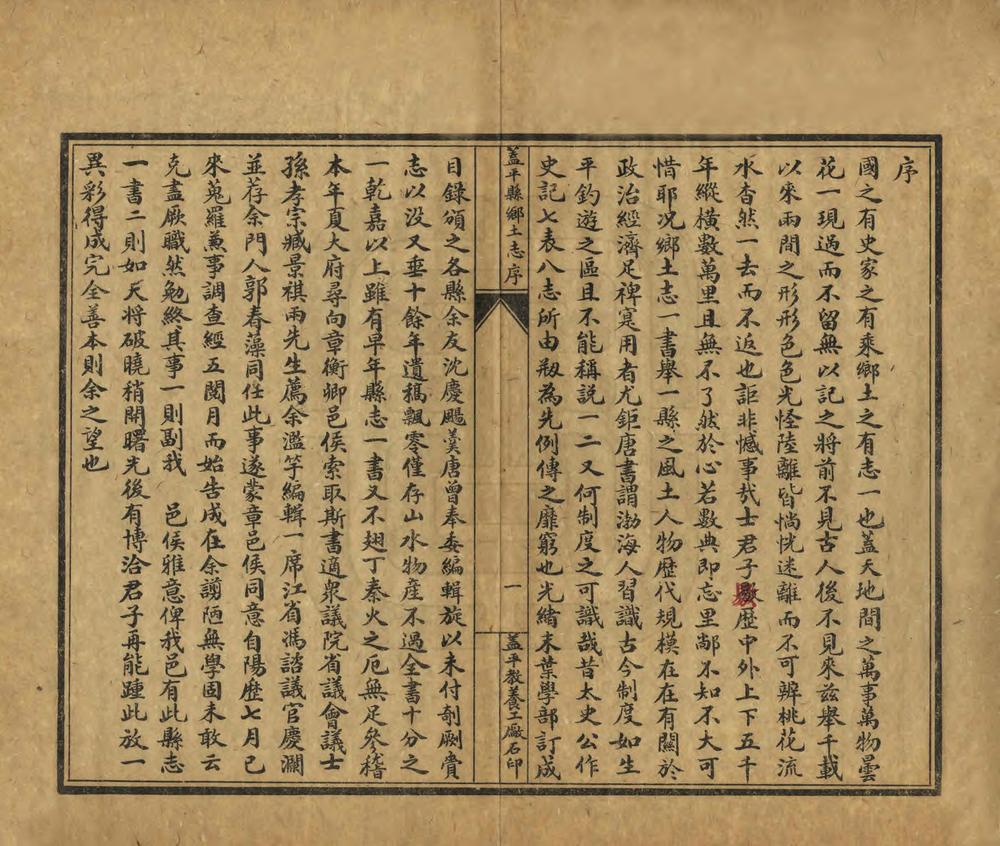 序
國之有史家之有乘鄉土之有志一也蓋天地間之萬事萬物曇
花一現過而不留無以記之將前不見古人後不見來兹舉千載
以來兩間之形形色色光怪陸離皆惝恍迷離而不可辨桃花流
水杳然一去而不返也詎非憾事哉士君子歷中外上下五千
年縱橫數萬里且無不了然於心若數典即忘里鄙不知不大可
惜耶况鄉土志一書舉一縣之風土人物歷代規模在在有關於
政治經濟足裨寔用者尤鉅唐書謂渤海人習識古今制度如生
平釣遊之區且不能稱說一二又何制度之可識哉昔太史公作
史記七表八志所由剏為先例傳之靡窮也光緒末葉學部訂成
蓋平縣鄉土志序
一
蓋平教養工廠石印
目錄頒之各縣余友沈慶颺羹唐曾奉委編輯旋以未付剞劂賫
志以沒又垂十餘年遺稿飄零僅存山水物產不過全書十分之
一乾嘉以上雖有早年縣志一書又不翅丁秦火之厄無足參稽
本年夏大府尋向章衡卿邑侯索取斯書適衆議院省議會議士
孫孝宗臧景祺兩先生薦余濫竽編輯一席江省馮諮議官慶瀾
並荐余門人郭春藻同任此事遂蒙章邑侯同意自陽歷七月已
來蒐羅兼事調查經五閱月而始告成在余謭陋無學固未敢云
克盡厥職然勉終其事一則副我　邑侯雅意俾我邑有此縣志
一書二則如天將破曉稍開曙光後有博洽君子再能踵此放一
異彩得成完全善本則余之望也